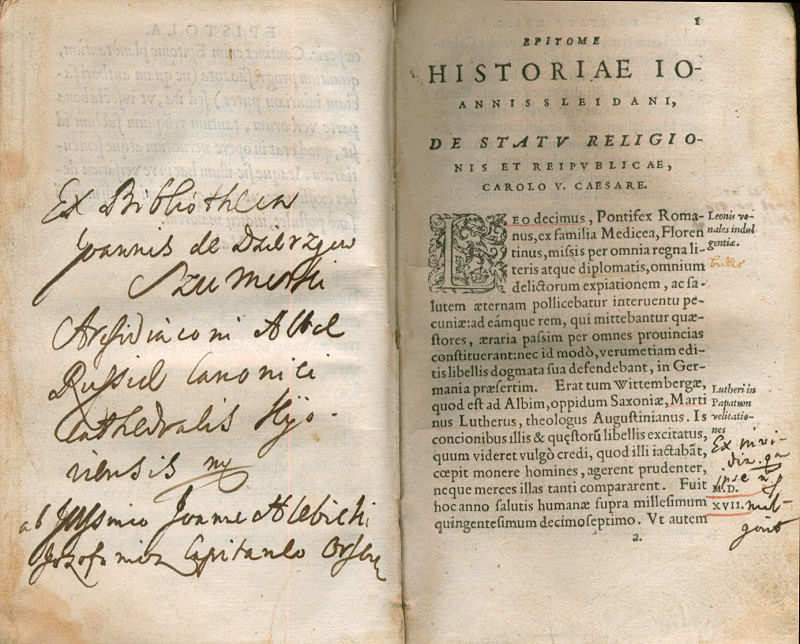 EPISTOLA.
Ex Bibliotheca
Joannis de
Szumerski
Canonici
Cathedralis Kijo-
viensis
ab
Joanne
Capitaneo
1
EPITOME
HISTORIAE IO-
ANNIS SLEIDANI,
DE STATV RELIGIO-
NIS ET REIPVBLICAE,
CAROLO V. CAESARE.
LEO decimus, Pontifex Roma-
nus, ex familia Medicea, Floren
tinus, missis per omnia regna li-
teris atque diplomatis, omnium
delictorum expiationem, ac sa-
lutem æternam pollicebatur interuentu pe-
cuniæ: ad eámque rem, qui mittebantur quæ-
stores, æraria passim per omnes prouincias
constituerant: nec id modò, verumetiam edi-
tis libellis dogmata sua defendebant, in Ger-
mania præsertim. Erat tum Wittembergæ,
quod est ad Albim, oppidum Saxoniæ, Marti
nus Lutherus, theologus Augustinianus. Is
concionibus illis & quęstorũ libellis excitatus,
quum videret vulgò credi, quod illi iactabãt,
cœpit monere homines, agerent prudenter,
neque merces illas tanti compararent. Fuit
hoc anno salutis humanæ supra millesimum
quingentesimum decimoseptimo. Vt autem
2.
Leonis ve-
nales indul
gentiæ.
Lutheri in
Papatum
velitatio-
nes
Ex
ipse
M.D.
XVII.